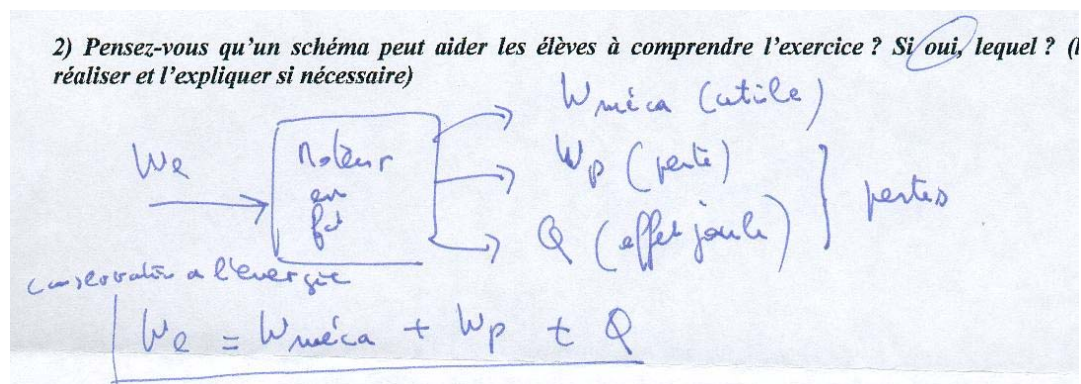 2) Pensez-vous qu'un schéma peut aider les élèves à comprendre l'exercice ? Si oui, lequel ? (l
réaliser et l'expliquer si nécessaire)
Wméca (utile)
We
Moteur
en
fct
Wp (perte)
Q (effet joule)
pertes
conservation de l'énergie
We = Wméca + Wp + Q